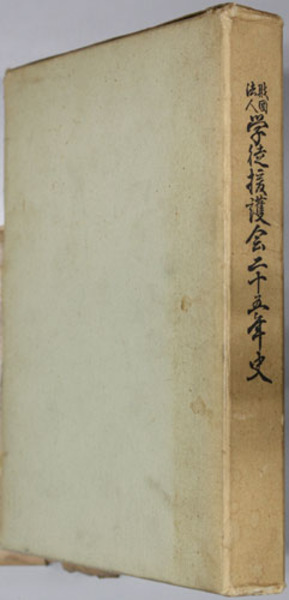 財団法人学徒援護会二十五年史